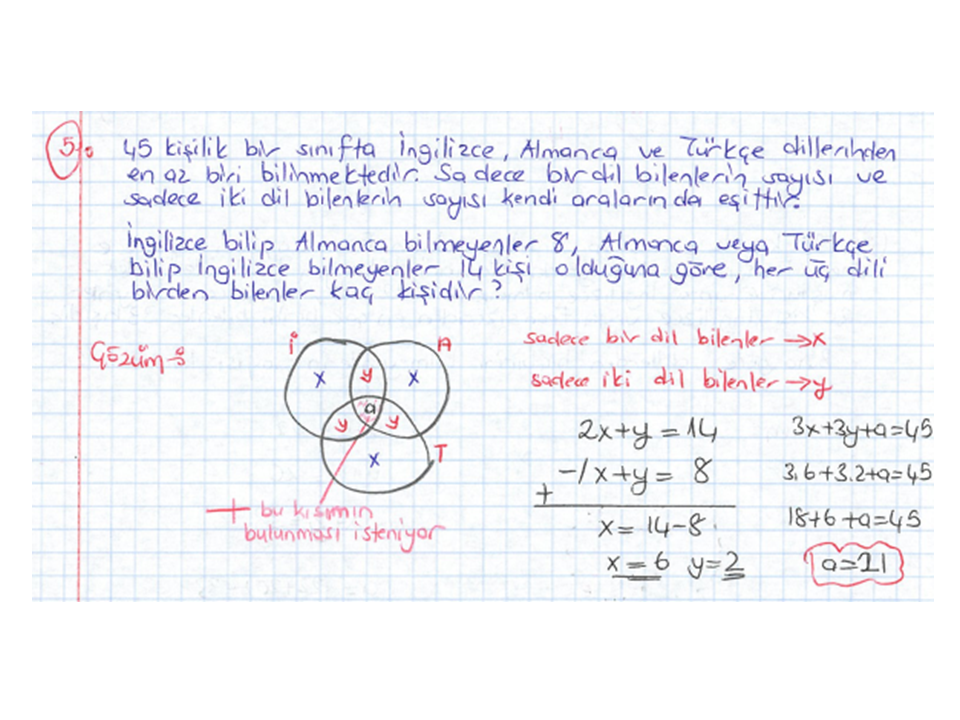 5.
45 kişilik bir sınıfta İngilizce, Almanca ve Türkçe dillerinden
en az biri bilinmektedir. Sadece bir dil bilenlerin sayısı ve
sadece iki dil bilenlerin sayısı kendi aralarında eşittir.
İngilizce bilip Almanca bilmeyenler 8, Almanca veya Türkçe
bilip İngilizce bilmeyenler 14 kişi olduğuna göre, her üç dili
birden bilenler kaç kişidir?
Çözüm:
İ
A
x y x
a
y y
x
T
bu kısımın
bulunması isteniyor
sadece bir dil bilenler → x
sadece iki dil bilenler → y
2x+y = 14
-/ x+y = 8
+
x = 14-8
x = 6 y = 2
3x+3y+a=45
3.6+3.2+a=45
18+6+a=45
a=21